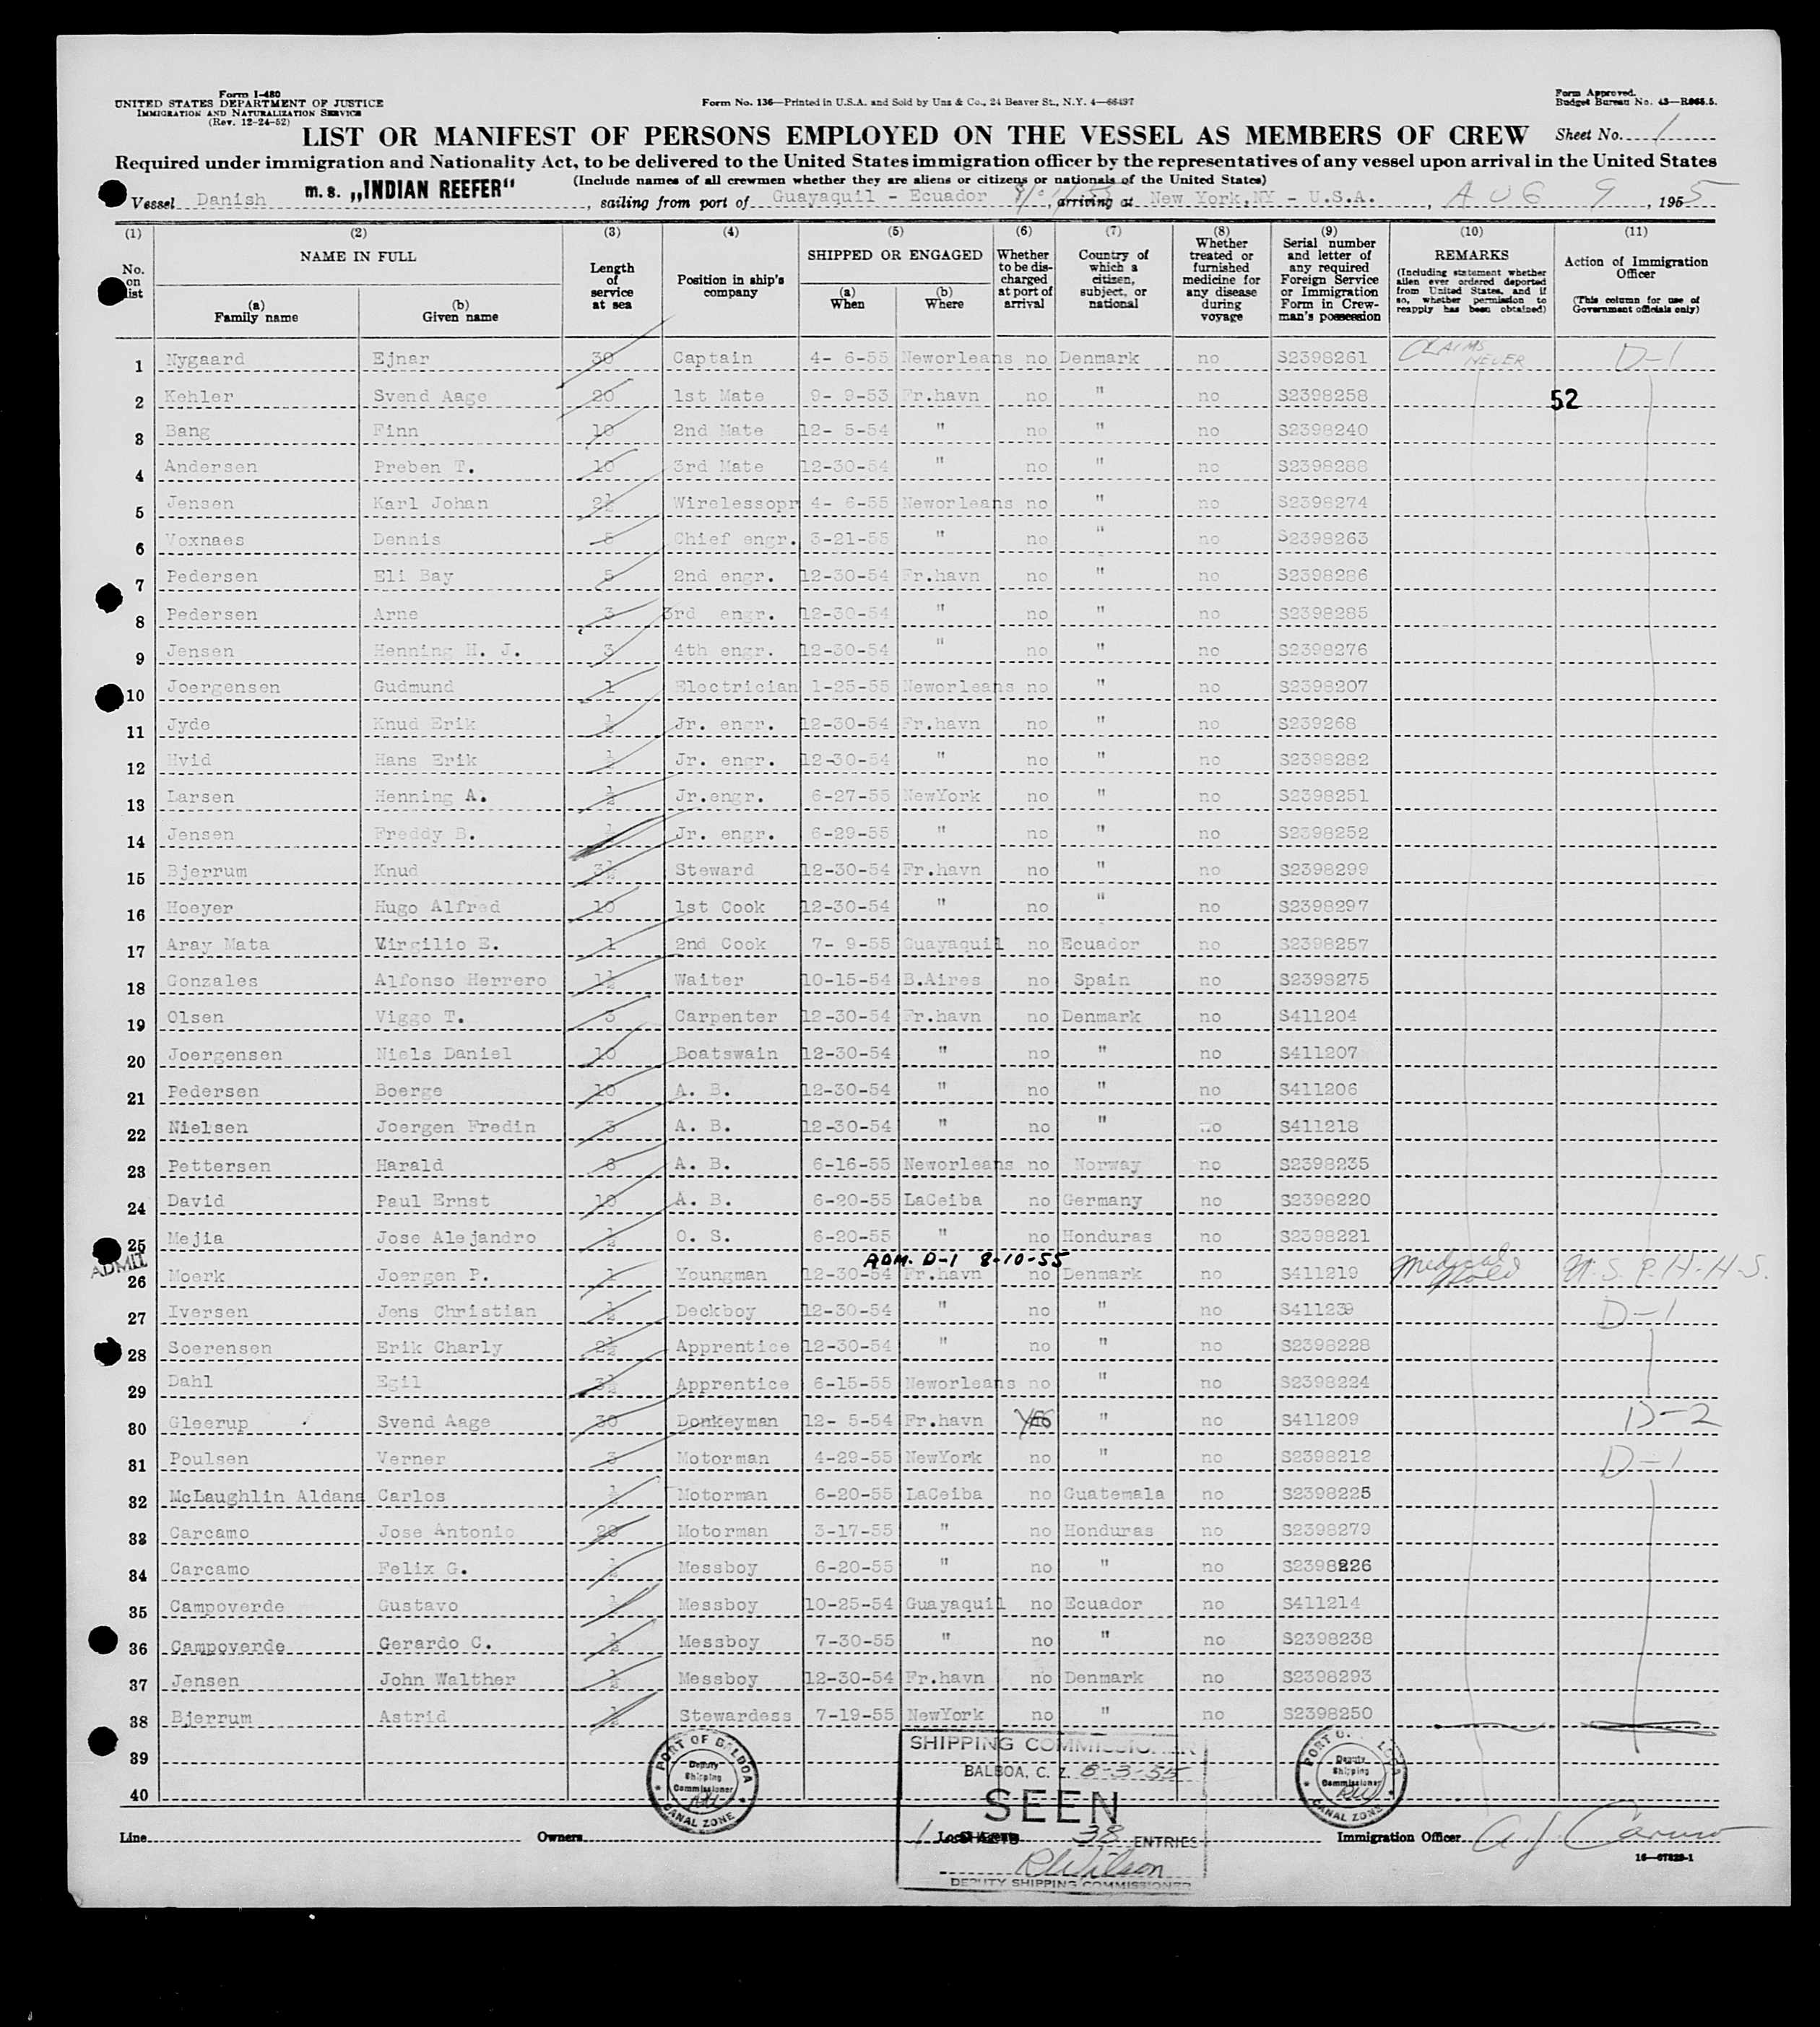 Form I-480
UNITED STATES DEPARTMENT OF JUSTICE
IMMIGRATION AND NATURALIZATION SERVICE
(Rev. 12-24-52)
Form No. 136—Printed in U.S.A. and Sold by Unz & Co., 24 Beaver St., N.Y. 4—66497
Form Approved.
Budget Bureau No. 43—R065.5.
LIST OR MANIFEST OF PERSONS EMPLOYED ON THE VESSEL AS MEMBERS OF CREW
Sheet No. 1
Required under immigration and Nationality Act, to be delivered to the United States immigration officer by the representatives of any vessel upon arrival in the United States
(Include names of all crewmen whether they are aliens or citizens or nationals of the United States)
Vessel Danish m. s. „INDIAN REEFER", sailing from port of Guayaquil - Ecuador, arriving at New York.NY - U.S.A., AUG 9, 1955
(1) (2) (3) (4) (5) (6) (7) (8) (9) (10) (11)
No. on list
NAME IN FULL
(a) Family name
(b) Given name
Length of service at sea
Position in ship's company
SHIPPED OR ENGAGED
(a) When
(b) Where
Whether to be discharged at port of arrival
Country of which a citizen, subject, or national
Whether treated or furnished medicine for any disease during voyage
Serial number and letter of any required Foreign Service or Immigration Form in Crew-man's possession
REMARKS
(Including statement whether alien ever ordered deported from United States, and if so, whether permission to reapply has been obtained)
Action of Immigration Officer
(This column for use of Government officials only)
1 Nygaard Ejnar 30 Captain 4- 6-55 Neworleans no Denmark no S2398261 CLAIMS NEVER D-1
2 Kehler Svend Aage 20 1st Mate 9- 9-53 Fr.havn no " no S2398258 52
3 Bang Finn 10 2nd Mate 12- 5-54 " no " no S2398240
4 Andersen Preben T. 10 3rd Mate 12-30-54 " no " no S2398288
5 Jensen Karl Johan 2½ Wirelessopr 4- 6-55 Neworleans no " no S2398274
6 Voxnaes Dennis 5 Chief engr. 3-21-55 " no " no S2398263
7 Pedersen Eli Bay 5 2nd engr. 12-30-54 Fr.havn no " no S2398286
8 Pedersen Arne 3 3rd engr. 12-30-54 " no " no S2398285
9 Jensen Henning H. J. 3 4th engr. 12-30-54 " no " no S2398276
10 Joergensen Gudmund 1 Electrician 1-25-55 Neworleans no " no S2398207
11 Jyde Knud Erik ½ Jr. engr. 12-30-54 Fr.havn no " no S239268
12 Hvid Hans Erik ½ Jr. engr. 12-30-54 " no " no S2398282
13 Larsen Henning A. ½ Jr.engr. 6-27-55 NewYork no " no S2398251
14 Jensen Freddy B. ½ Jr. engr. 6-29-55 " no " no S2398252
15 Bjerrum Knud 3½ Steward 12-30-54 Fr.havn no " no S2398299
16 Hoeyer Hugo Alfred 10 1st Cook 12-30-54 " no " no S2398297
17 Aray Mata Virgilio E. 1 2nd Cook 7- 9-55 Guayaquil no Ecuador no S2398257
18 Gonzales Alfonso Herrero 1½ Waiter 10-15-54 B.Aires no Spain no S2398275
19 Olsen Viggo T. 3 Carpenter 12-30-54 Fr.havn no Denmark no S411204
20 Joergensen Niels Daniel 10 Boatswain 12-30-54 " no " no S411207
21 Pedersen Boerge 10 A. B. 12-30-54 " no " no S411206
22 Nielsen Joergen Fredin 3 A. B. 12-30-54 " no " no S411218
23 Pettersen Harald 6 A. B. 6-16-55 Neworleans no Norway no S2398235
24 David Paul Ernst 10 A. B. 6-20-55 LaCeiba no Germany no S2398220
25 Mejia Jose Alejandro ½ O. S. 6-20-55 " no Honduras no S2398221
ADMIT ADM. D-1 8-10-55
26 Moerk Joergen P. 1 Youngman 12-30-54 Fr.havn no Denmark no S411219 Medical Hold U.S.P.H.H.S.
27 Iversen Jens Christian ½ Deckboy 12-30-54 " no " no S411239 D-1
28 Soerensen Erik Charly 2½ Apprentice 12-30-54 " no " no S2398228
29 Dahl Egil 3½ Apprentice 6-15-55 Neworleans no " no S2398224
30 Gleerup Svend Aage 30 Donkeyman 12- 5-54 Fr.havn YES " no S411209 D-2
31 Poulsen Verner 3 Motorman 4-29-55 NewYork no " no S2398212 D-1
32 McLaughlin Aldana Carlos ½ Motorman 6-20-55 LaCeiba no Guatemala no S2398225
33 Carcamo Jose Antonio 20 Motorman 3-17-55 " no Honduras no S2398279
34 Carcamo Felix G. ½ Messboy 6-20-55 " no " no S2398226
35 Campoverde Gustavo ½ Messboy 10-25-54 Guayaquil no Ecuador no S411214
36 Campoverde Gerardo C. ½ Messboy 7-30-55 " no " no S2398238
37 Jensen John Walther ½ Messboy 12-30-54 Fr.havn no Denmark no S2398293
38 Bjerrum Astrid ½ Stewardess 7-19-55 NewYork no " no S2398250
39
40
PORT OF BALBOA Deputy Shipping Commissioner CANAL ZONE
SHIPPING COMMISSIONER
BALBOA, C. Z. 8-3-55
SEEN
1 38 ENTRIES
RWilson
DEPUTY SHIPPING COMMISSIONER
PORT OF BALBOA Deputy Shipping Commissioner CANAL ZONE
Line Owners Local Agents Immigration Officer A J Caruso
16—67829-1